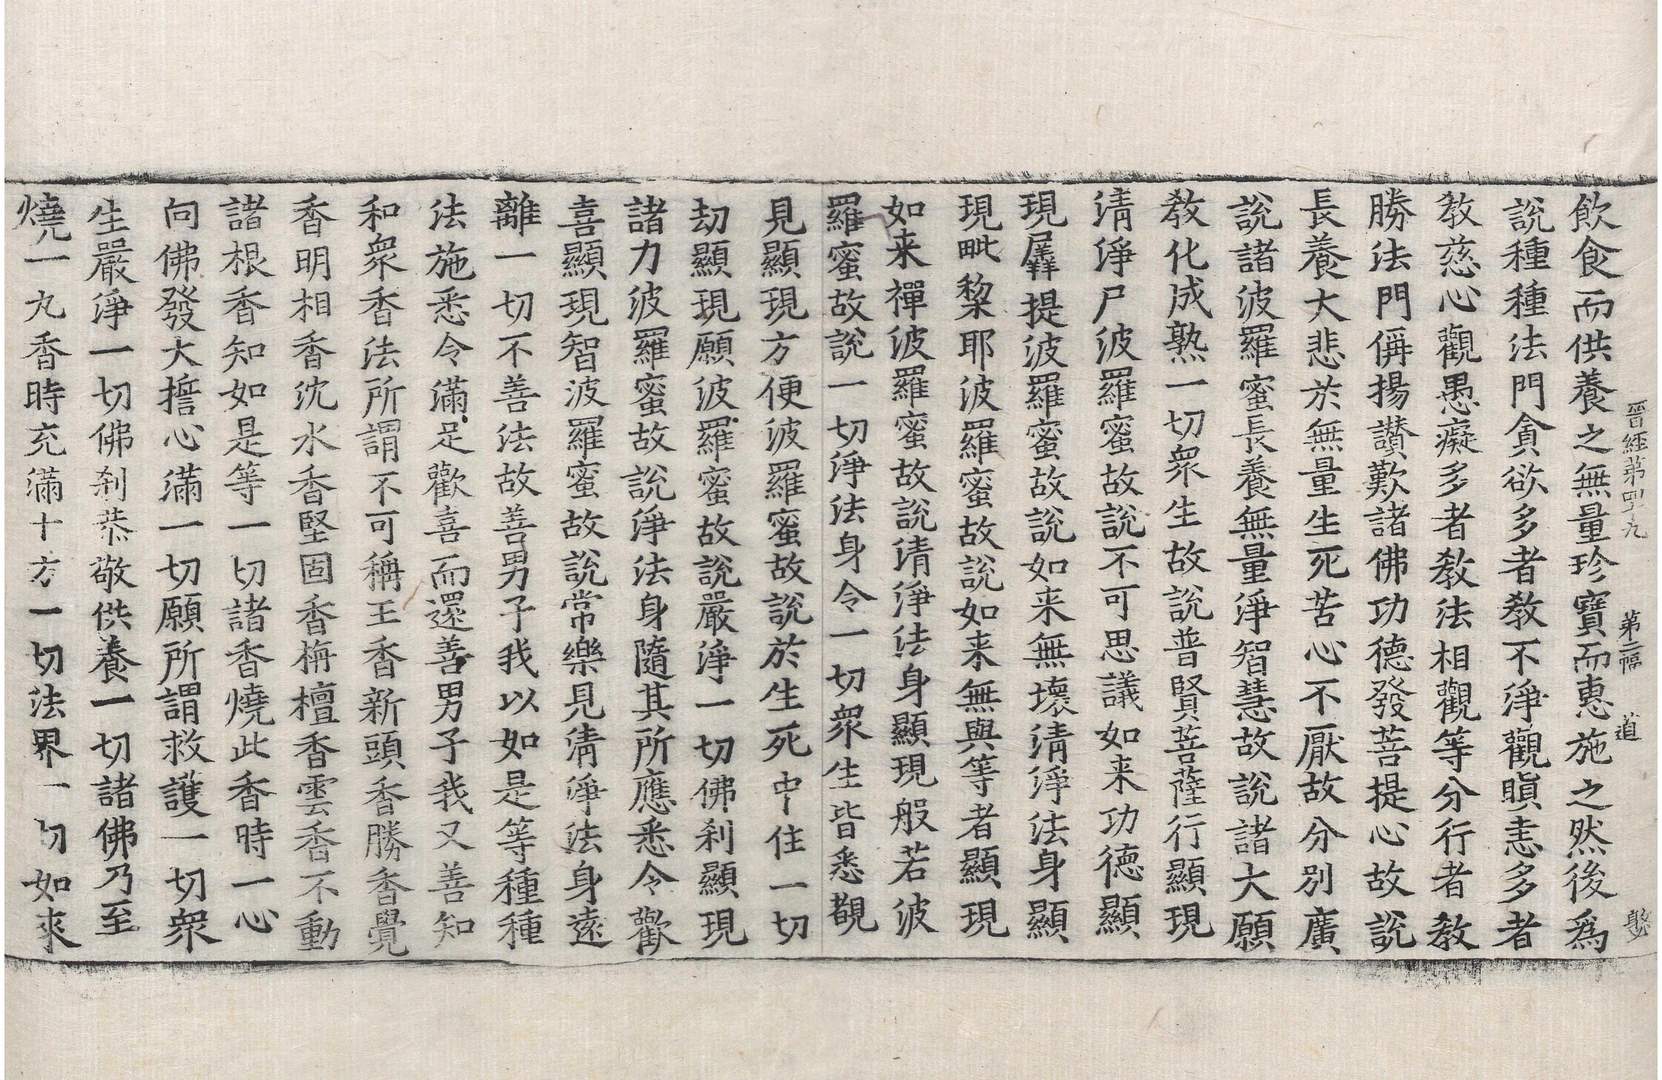 晋經第四十九 第二幅 道
飲食而供養之無量珍寶而惠施之然後爲
說種種法門貪欲多者教不淨觀瞋恚多者
教慈心觀愚癡多者教法相觀等分行者教
勝法門偁揚讃歎諸佛功德發菩提心故說
長養大悲於無量生死苦心不厭故分別廣
說諸波羅蜜長養無量淨智慧故說諸大願
教化成熟一切衆生故說普賢菩薩行顯現
淸淨尸波羅蜜故說不可思議如来功德顯
現羼提波羅蜜故說如来無壞淸淨法身顯
現毗棃耶波羅蜜故說如来無與等者顯現
如来禪波羅蜜故說淸淨法身顯現般若波
羅蜜故說一切淨法身令一切衆生皆悉覩
見顯現方便波羅蜜故說於生死中住一切
劫顯現願波羅蜜故說嚴淨一切佛刹顯現
諸力波羅蜜故說淨法身隨其所應悉令歡
喜顯現智波羅蜜故說常樂見淸淨法身遠
離一切不善法故善男子我以如是等種種
法施悉令滿足歡喜而還善男子我又善知
和衆香法所謂不可稱王香新頭香勝香覺
香明相香沈水香堅固香栴檀香雲香不動
諸根香知如是等一切諸香燒此香時一心
向佛發大誓心滿一切願所謂救護一切衆
生嚴淨一切佛刹恭敬供養一切諸佛乃至
燒一丸香時充滿十方一切法界一切如來